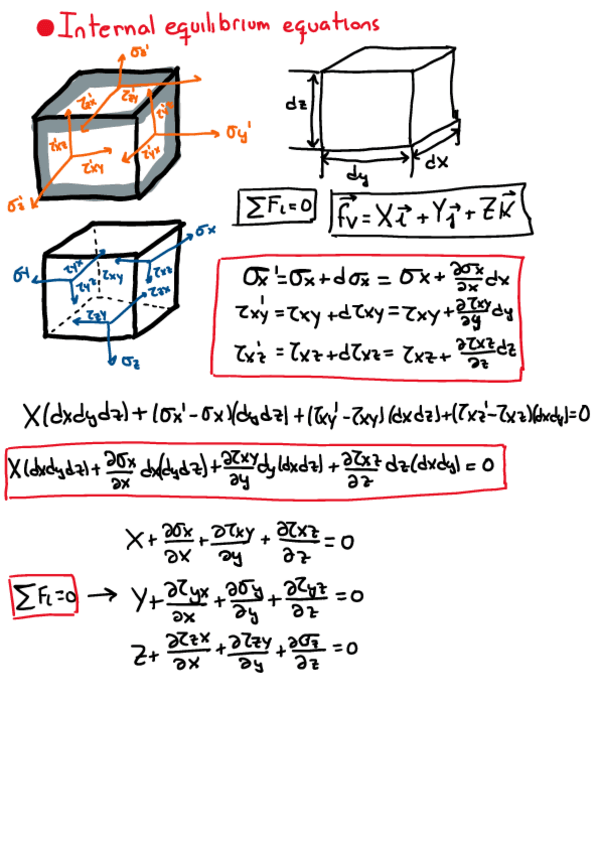 Internal equilibrium equations
σz'
τzx' τzy'
τyz'
τxz' τyx' σy'
τxy'
σx'
dz
dy dx
∑Fi=0 f⃗v = Xi⃗+Yj⃗+Zk⃗
σx
σy τyx τxy τxz
τyz τzx
τzy
σz
σx'=σx+dσx = σx+∂σx/∂x dx
τxy'=τxy+dτxy=τxy+∂τxy/∂y dy
τxz'=τxz+dτxz=τxz+∂τxz/∂z dz
X(dxdydz)+(σx'-σx)(dydz)+(τxy'-τxy)(dxdz)+(τxz'-τxz)(dxdy)=0
X(dxdydz)+∂σx/∂x dx(dydz)+∂τxy/∂y dy(dxdz)+∂τxz/∂z dz(dxdy)=0
X+∂σx/∂x+∂τxy/∂y+∂τxz/∂z=0
∑Fi=0 → Y+∂τyx/∂x+∂σy/∂y+∂τyz/∂z=0
Z+∂τzx/∂x+∂τzy/∂y+∂σz/∂z=0